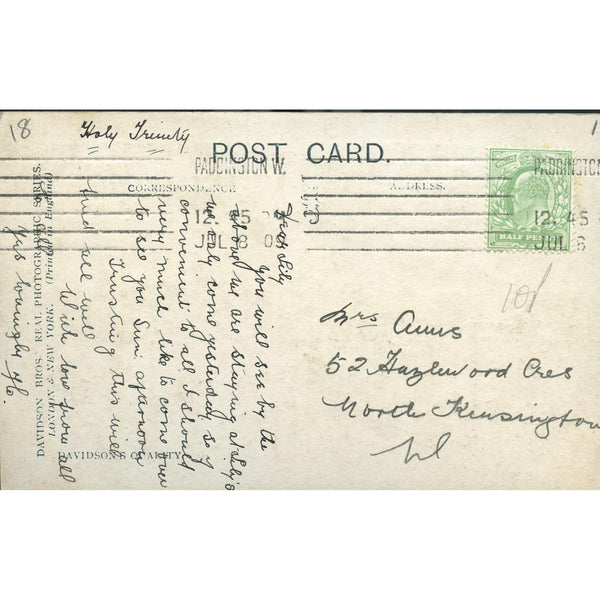 18
Holy Trinity
POST CARD.
PADDINGTON W.
12.45
JUL 8 09
PADDINGTON
12.45
JUL 8
CORRESPONDENCE
ADDRESS.
HALF PENNY
Dear Lily
You will see by the
above we are staying at Lily's
we only come yesterday so if
convenient to all I should
very much like to come over
to see you Sun. afternoon
Trusting this will
find all well
With love from all
Yrs lovingly
DAVIDSON BROS. REAL PHOTOGRAPHIC SERIES.
LONDON & NEW YORK.
(Printed in England)
DAVIDSON'S QUALITY
Mrs Anns
52 Hazlewood Cres
North Kensington
W
10/